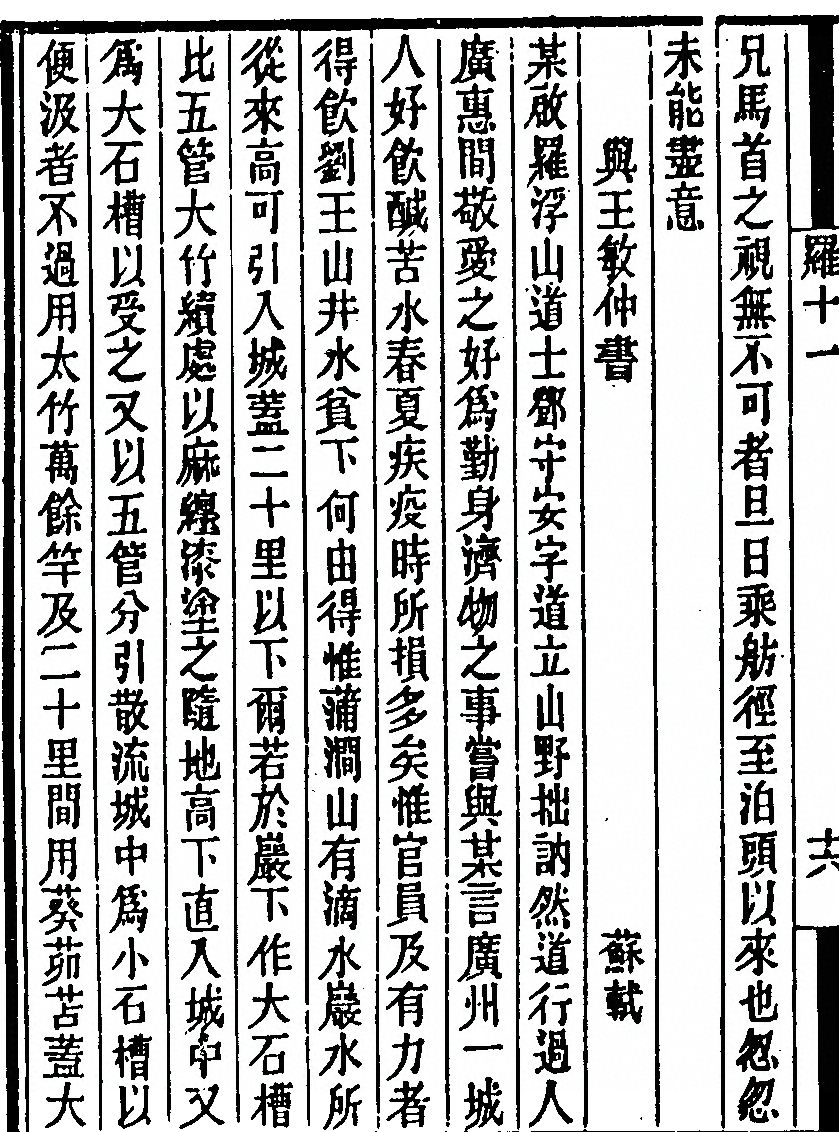 羅十一
十六
兄馬首之視無不可者旦日乘舫徑至泊頭以來也怱怱
未能盡意
與王敏仲書 蘇軾
某啟羅浮山道士鄧守安字道立山野拙訥然道行過人
廣惠間敬愛之好爲勤身濟物之事嘗與某言廣州一城
人好飲醎苦水春夏疾疫時所損多矣惟官員及有力者
得飲劉王山井水貧下何由得惟蒲澗山有滴水巖水所
從來高可引入城蓋二十里以下爾若於巖下作大石槽
比五管大竹續處以麻纏漆塗之隨地高下直入城中又
爲大石槽以受之又以五管分引散流城中爲小石槽以
便汲者不過用太竹萬餘竿及二十里間用葵茆苫蓋大